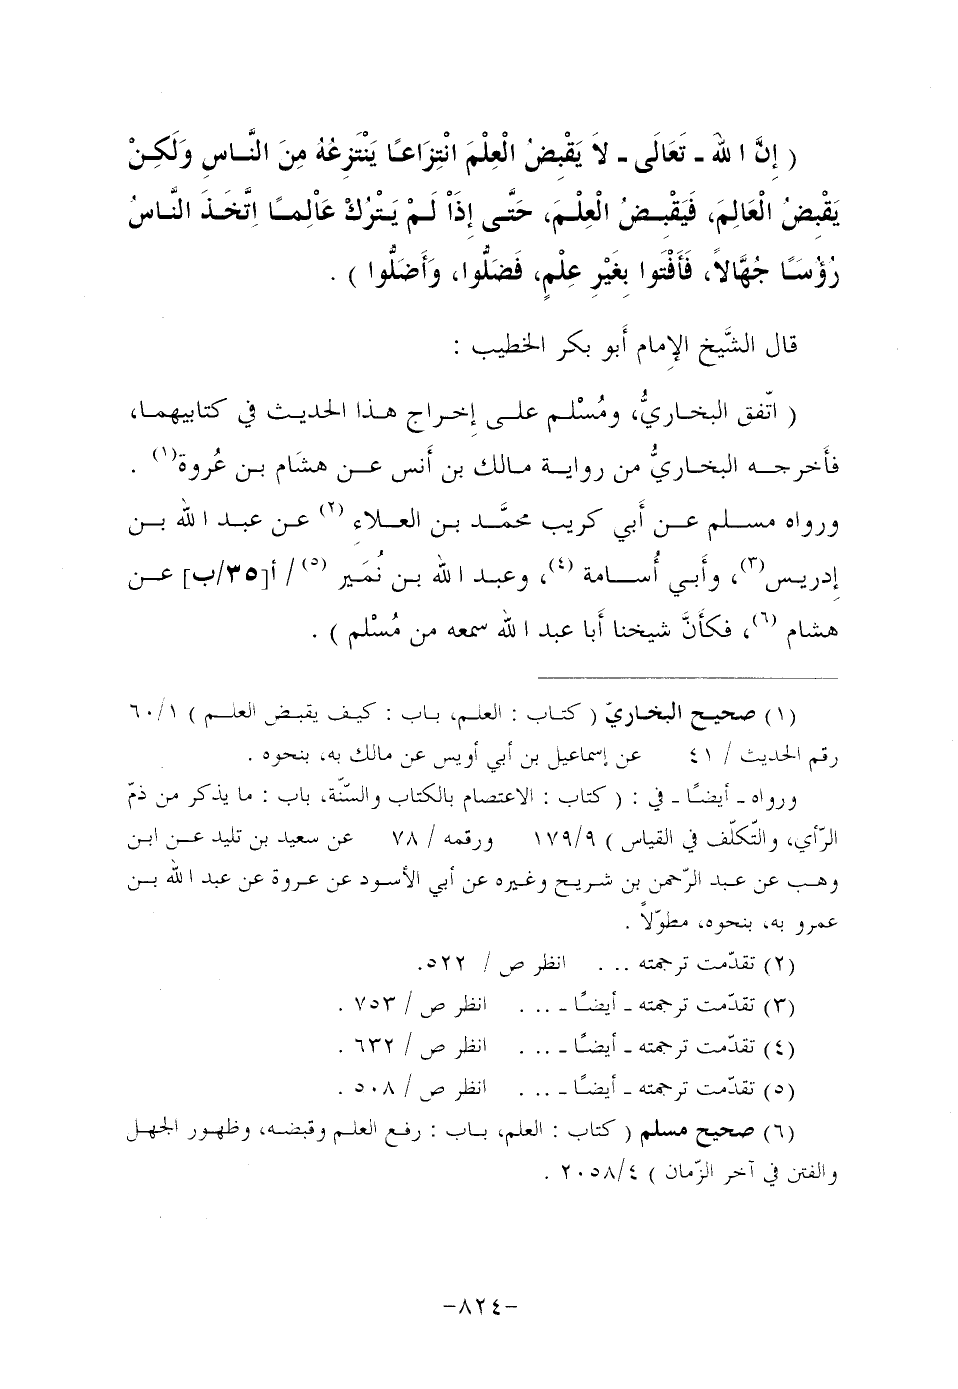 ( إنَّ الله ـ تَعَالَى ـ لاَ يَقْبِضُ الْعِلْمَ انْتِزَاعـًا يَنْتَزِعُهُ مِنَ النَّـاسِ وَلَكِـنْ
يَقْبِضُ الْعَالِمَ، فَيَقْبِـضُ الْعِلْـمَ، حَتَّـى إِذَاْ لَـمْ يَـتْرُكْ عَاْلِمـًا اِتَّخَـذَ النَّـاسُ
رُؤُسَـًا جُهَّالاً، فَأَفْتَوا بِغَيْرِ عِلْمٍ، فَضَلُّوا، وَأَضَلُّوا ) .
قال الشَّيخ الإمام أَبو بكر الخطيب :
( اتّفق البخـاريُّ، ومُسْلم علـى إخـراج هـذا الحديـث في كتابيهمـا،
فأخرجـه البخـاريُّ من روايـة مـالك بن أنس عـن هشَام بـن عُروة(١) .
ورواه مسـلم عـن أَبي كريب محمَّـد بـن العـلاء (٢) عـن عبـد الله بـن
إدريـس(٣)، وأَبـي أُسـامة (٤)، وعبـد الله بـن نُمَـير (٥) / أ[٣٥/ب] عـن
هشام (٦)، فكأَنَّ شيخنا أَبا عبد الله سمعه من مُسْلم ) .
(١) صحيـح البخـاريّ ( كتـاب : العلـم، بـاب : كيـف يقبـض العلـم ) ٦٠/١
رقم الحديث / ٤١ عن إسماعيل بن أبي أويس عن مالك به، بنحوه .
ورواه ـ أيضـًا ـ في : ( كتاب : الاعتصام بالكتاب والسّنّة، باب : ما يذكر من ذمّ
الرّأي، والتّكلّف في القياس ) ١٧٩/٩ ورقمه / ٧٨ عن سعيد بن تليد عـن ابـن
وهـب عن عبـد الرّحمن بن شريـح وغيره عن أبي الأسود عن عـروة عن عبـد الله بـن
عمرو به، بنحوه، مطوّلاً .
(٢) تقدّمت ترجمته ... انظر ص / ٥٢٢.
(٣) تقدّمت ترجمته ـ أيضـًا ـ ... انظر ص / ٧٥٣ .
(٤) تقدّمت ترجمته ـ أيضـًا ـ ... انظر ص / ٦٣٢ .
(٥) تقدّمت ترجمته ـ أيضـًا ـ ... انظر ص / ٥٠٨ .
(٦) صحيح مسلم ( كتاب : العلم، بـاب : رفـع العلم وقبضـه، وظهـور الجهـل
والفتن في آخر الزّمان ) ٢٠٥٨/٤ .
-٨٢٤-